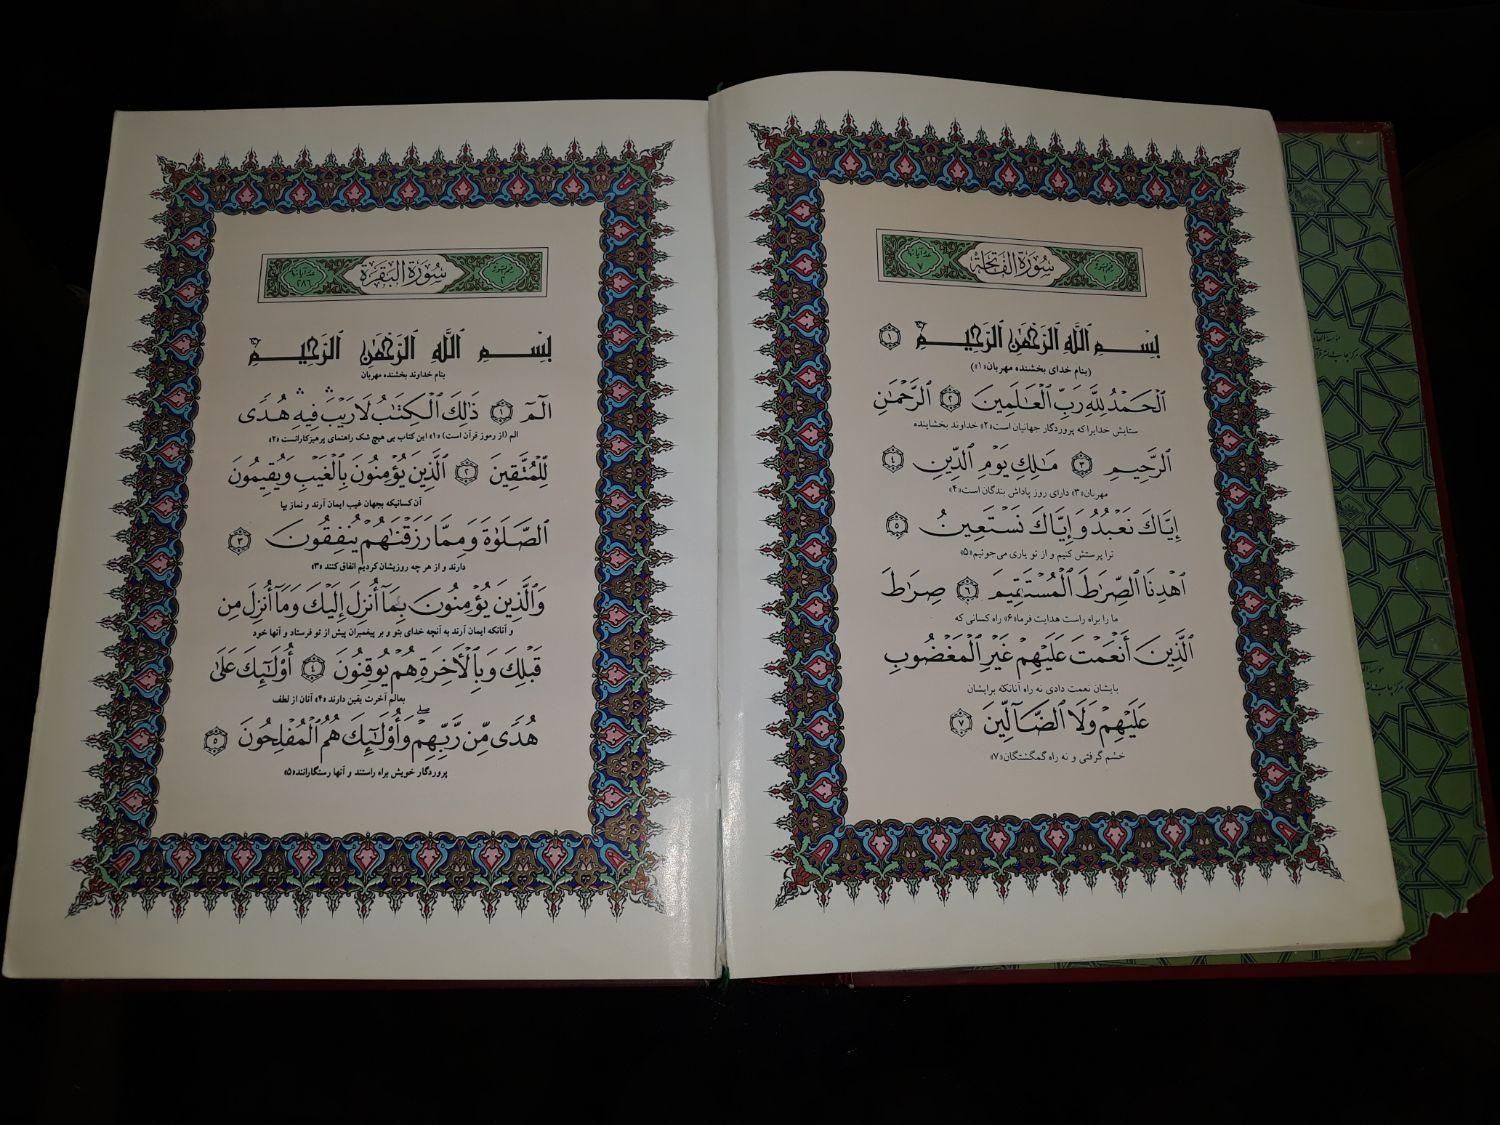 سُورَةُ الْفَاتِحَةِ
٧
بِسْمِ اللَّهِ الرَّحْمَٰنِ الرَّحِيمِ ١
(بنام خدای بخشنده مهربان«١»)
الْحَمْدُ لِلَّهِ رَبِّ الْعَالَمِينَ ٢ الرَّحْمَٰنِ
ستایش خدایراکه پروردگار جهانیان است«٢» خداوند بخشاینده
الرَّحِيمِ ٣ مَالِكِ يَوْمِ الدِّينِ ٤
مهربان«٣» دارای روز پاداش بندگان است«٤»
إِيَّاكَ نَعْبُدُ وَإِيَّاكَ نَسْتَعِينُ ٥
ترا پرستش کنیم و از تو یاری می‌جوئیم«٥»
اهْدِنَا الصِّرَاطَ الْمُسْتَقِيمَ ٦ صِرَاطَ
ما را براه راست هدایت فرما«٦» راه کسانی که
الَّذِينَ أَنْعَمْتَ عَلَيْهِمْ غَيْرِ الْمَغْضُوبِ
بایشان نعمت دادی نه راه آنانکه برایشان
عَلَيْهِمْ وَلَا الضَّآلِّينَ ٧
خشم گرفتی و نه راه گمگشتگان«٧»
سُورَةُ الْبَقَرَةِ
٢
٢٨٦
بِسْمِ اللَّهِ الرَّحْمَٰنِ الرَّحِيمِ
بنام خداوند بخشنده مهربان
الٓمٓ ١ ذَٰلِكَ الْكِتَابُ لَا رَيْبَ ۛ فِيهِ ۛ هُدًى
الم (از رموز قرآن است) «١» این کتاب بی هیچ شک راهنمای پرهیزکارانست «٢»
لِلْمُتَّقِينَ ٢ الَّذِينَ يُؤْمِنُونَ بِالْغَيْبِ وَيُقِيمُونَ
آن کسانیکه بجهان غیب ایمان آرند و نماز بپا
الصَّلَوٰةَ وَمِمَّا رَزَقْنَاهُمْ يُنْفِقُونَ ٣
دارند و از هر چه روزیشان کردیم انفاق کنند «٣»
وَالَّذِينَ يُؤْمِنُونَ بِمَآ أُنْزِلَ إِلَيْكَ وَمَآ أُنْزِلَ مِنْ
و آنانکه ایمان آرند به آنچه خدای بتو و بر پیغمبران پیش از تو فرستاد و آنها خود
قَبْلِكَ وَبِالْآخِرَةِ هُمْ يُوقِنُونَ ٤ أُوْلَٰٓئِكَ عَلَىٰ
بعالم آخرت یقین دارند «٤» آنان از لطف
هُدًى مِنْ رَبِّهِمْ ۖ وَأُوْلَٰٓئِكَ هُمُ الْمُفْلِحُونَ ٥
پروردگار خویش براه راستند و آنها رستگارانند «٥»